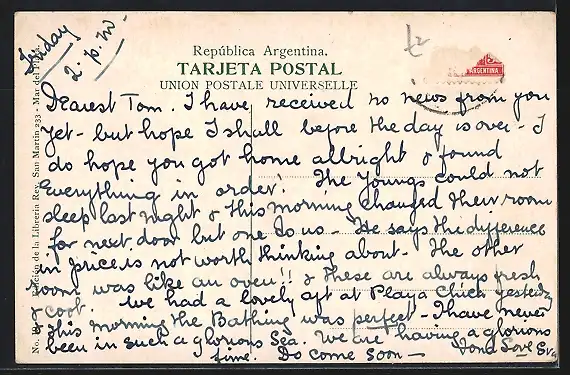 Friday
2. p.m.
República Argentina.
TARJETA POSTAL
UNION POSTALE UNIVERSELLE
ARGENTINA
Dearest Tom. I have received no news from you
yet - but hope I shall before the day is over - I
do hope you got home allright & found
everything in order! The Youngs could not
sleep last night & this morning changed their room
for next door but one to us - He says the difference
in price is not worth thinking about - The other
room was like an oven!! & these are always fresh
& cool. We had a lovely aft at Playa Chica yesterday
this morning the Bathing was perfect - I have never
been in such a glorious Sea. We are having a glorious
time. Do come soon - Fond Love
Edición de la Libreria Rey, San Martin 233 - Mar del Plata.